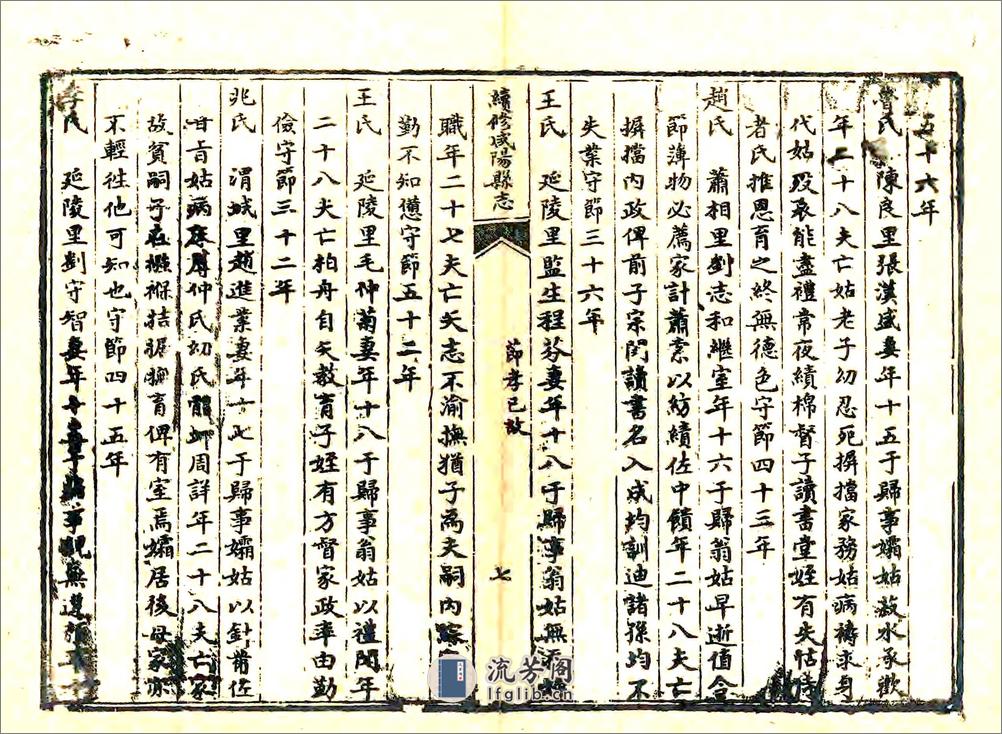 五十六年
曹氏 陳良里張漢盛妻年十五于歸事孀姑菽水承歡
年二十八夫亡姑老子幼忍死摒擋家務姑病禱求身
代姑歿哀能盡禮常夜績棉督子讀書堂姪有失怙恃
者氏推恩育之終無德色守節四十三年
趙氏 蕭相里劉志和繼室年十六于歸翁姑早逝值令
節薄物必薦家計蕭索以紡績佐中饋年二十八夫亡
摒擋內政俾前子宗閔讀書名入成均訓迪諸孫均不
失業守節三十六年
王氏 延陵里監生程芬妻年十八于歸事翁姑無
續修咸陽縣志
節孝已故
七
職年二十七夫亡矢志不渝撫猶子為夫嗣內綜
勤不知憊守節五十二年
王氏 延陵里毛仲菊妻年十八于歸事翁姑以禮閱年
二十八夫亡柏舟自矢教育子姪有方督家政率由勤
儉守節三十二年
兆氏 渭城里趙進業妻年十七于歸事孀姑以針黹佐
甘旨姑病床仲氏幼氏周詳年二十八夫亡家
故貧嗣子在襁褓拮据鞠育俾有室焉孀居後母家亦
不輕往他可知也守節四十五年
李氏 延陵里劉守智妻年十事無違
流芳阁
lfglib.cn